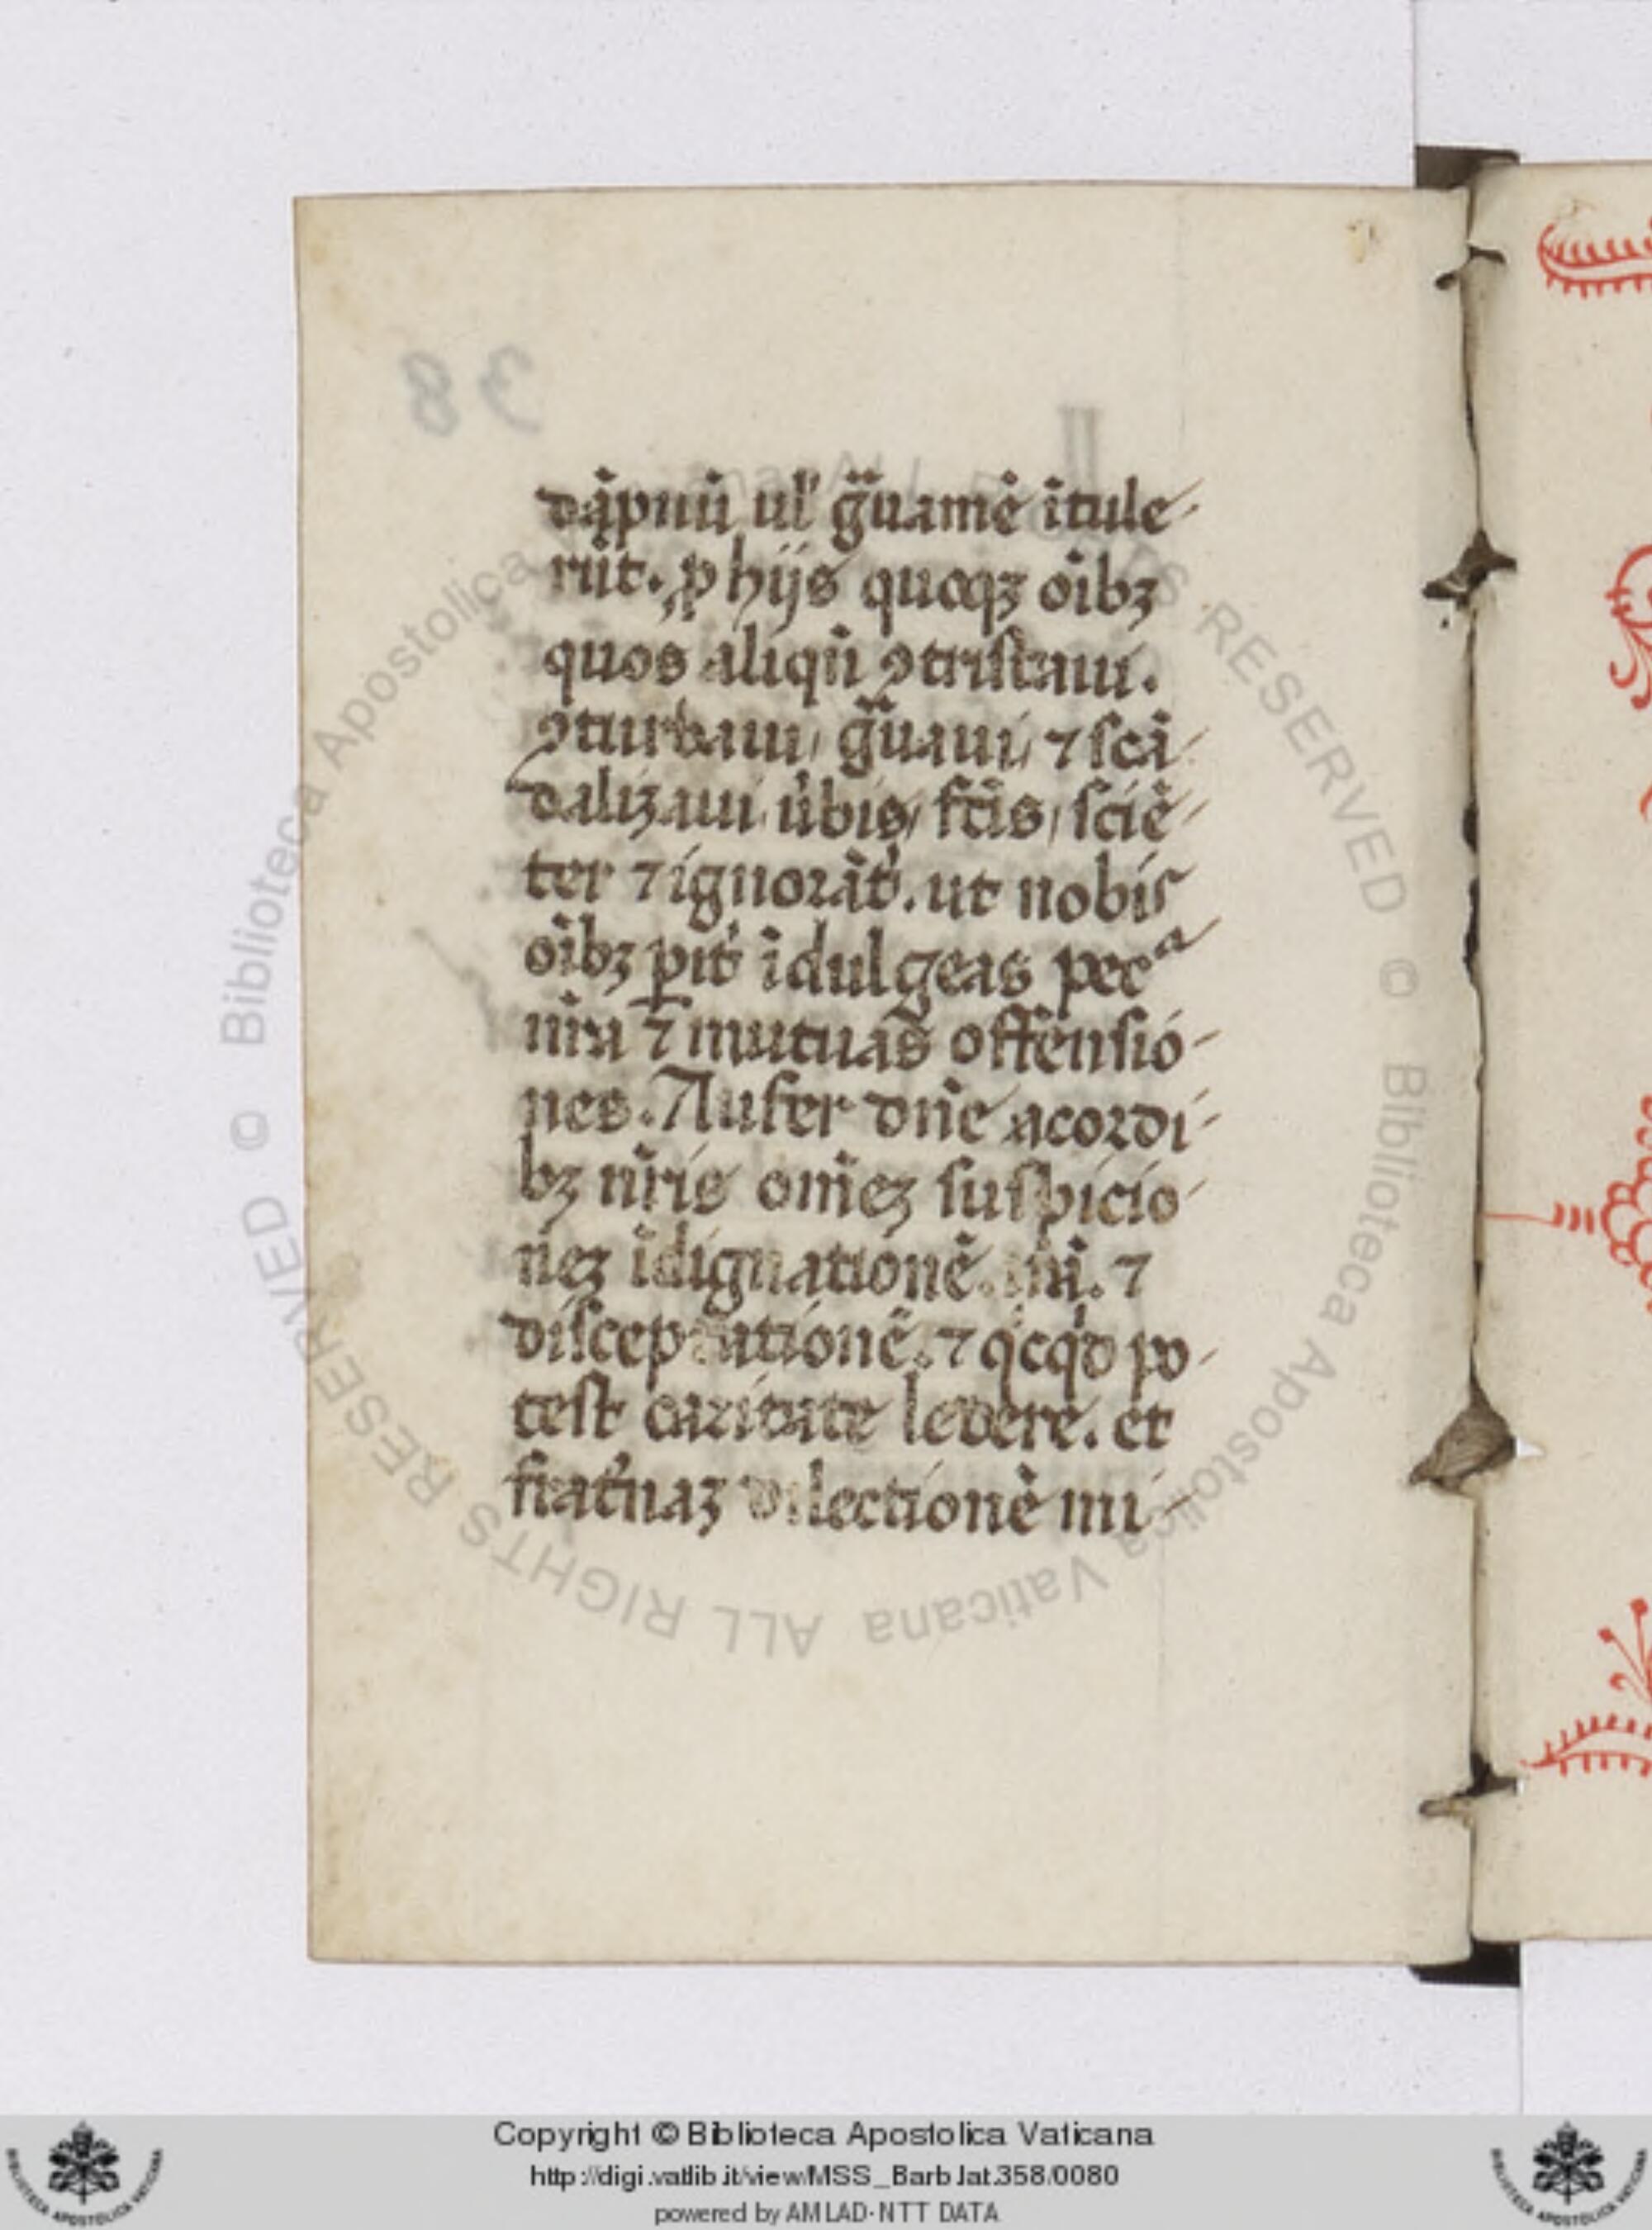 38
II
dāpnū ul' g̃uamē ītule-
rūt. ꝓ hijs quoqꝫ oībꝫ
quos aliqn̄ ꝯtristaui.
ꝯturbaui, g̃uaui, ⁊ scā-
dalizaui ūbis, fc̄is, sciē-
ter ⁊ ignorāt̉. ut nobis
oībꝫ ꝑit̉ īdulgeas pecᵃ
nr̄a ⁊ mutuas offensio-
nes. Aufer dn̄e acordi-
bꝫ nr̄is om̄eꝫ suspicio-
neꝫ īdignationē. irā. ⁊
disceptationē. ⁊ qͥcqͥd po-
test caritate ledere. et
frat̉naꝫ dilectionē mi-
© Biblioteca Apostolica Vaticana ALL RIGHTS RESERVED
© Biblioteca Apostolica Vaticana ALL RIGHTS RESERVED
Copyright © Biblioteca Apostolica Vaticana
http://digi.vatlib.it/view/MSS_Barb.lat.358/0080
powered by AMLAD-NTT DATA
BIBLIOTECA APOSTOLICA VATICANA
BIBLIOTECA APOSTOLICA VATICANA